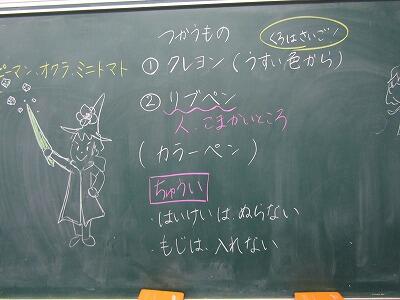 つかうもの
くろはさいご!
ピーマン、オクラ、ミニトマト
① クレヨン(うすい色から)
② リブペン
人、こまかいところ
(カラーペン)
ちゅうい
・はいけいは、ぬらない
・もじは、入れない